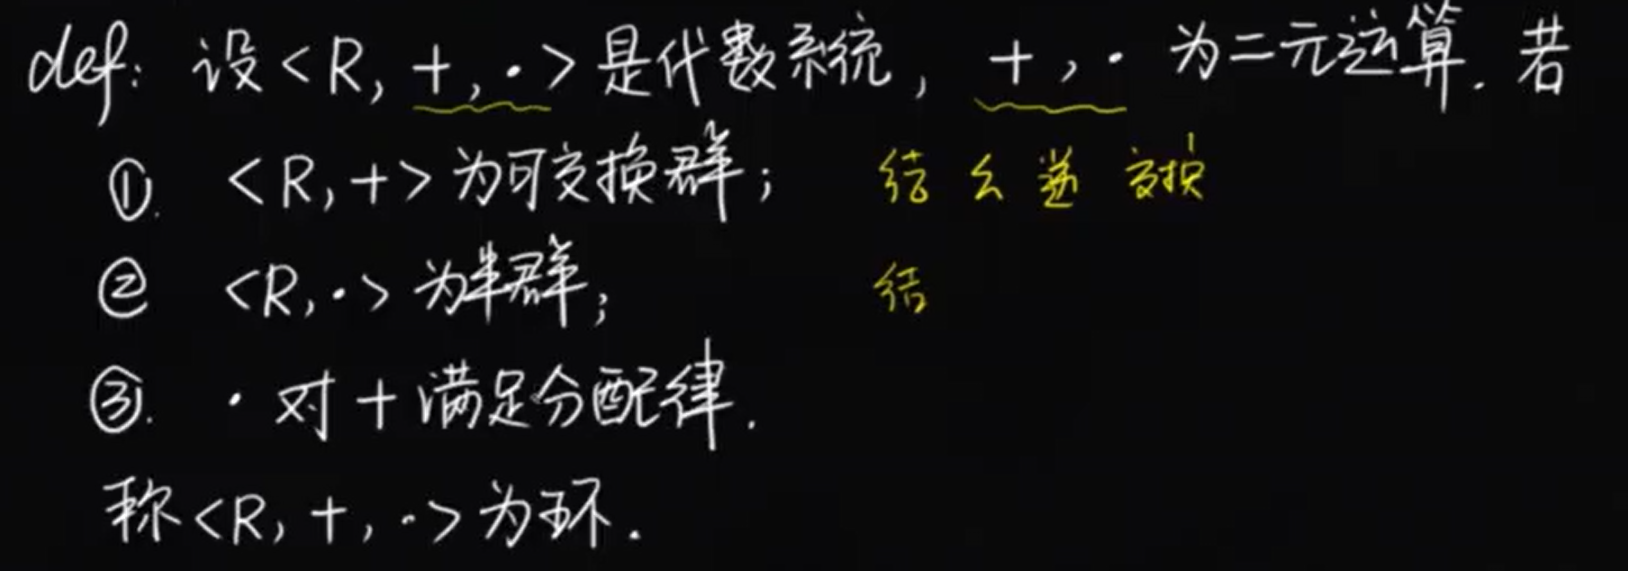 def: 设<R, +, ·>是代数系统, +, · 为二元运算. 若
①. <R, +>为可交换群; 结 幺 逆 交换
② <R, ·>为半群; 结
③. ·对+满足分配律.
称<R, +, ·>为环.